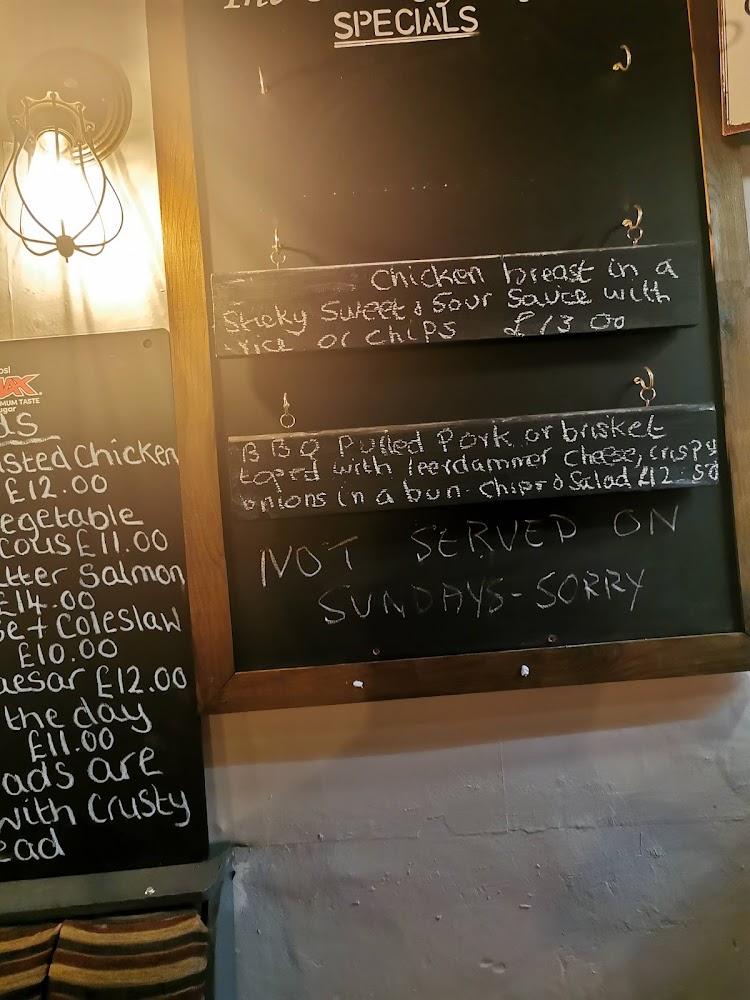 SPECIALS
Chicken breast in a
Sticky Sweet & Sour Sauce with
rice or chips £13 00
BBQ Pulled Pork or brisket
toped with leerdammer cheese, crispy
onions in a bun. Chips & Salad £12.50
NOT SERVED ON
SUNDAYS-SORRY
MAX
MUM TASTE
ds
sted Chicken
£12.00
egetable
cous £11.00
tter Salmon
£14.00
se + Coleslaw
£10.00
aesar £12.00
the day
£11.00
ads are
with Crusty
ead